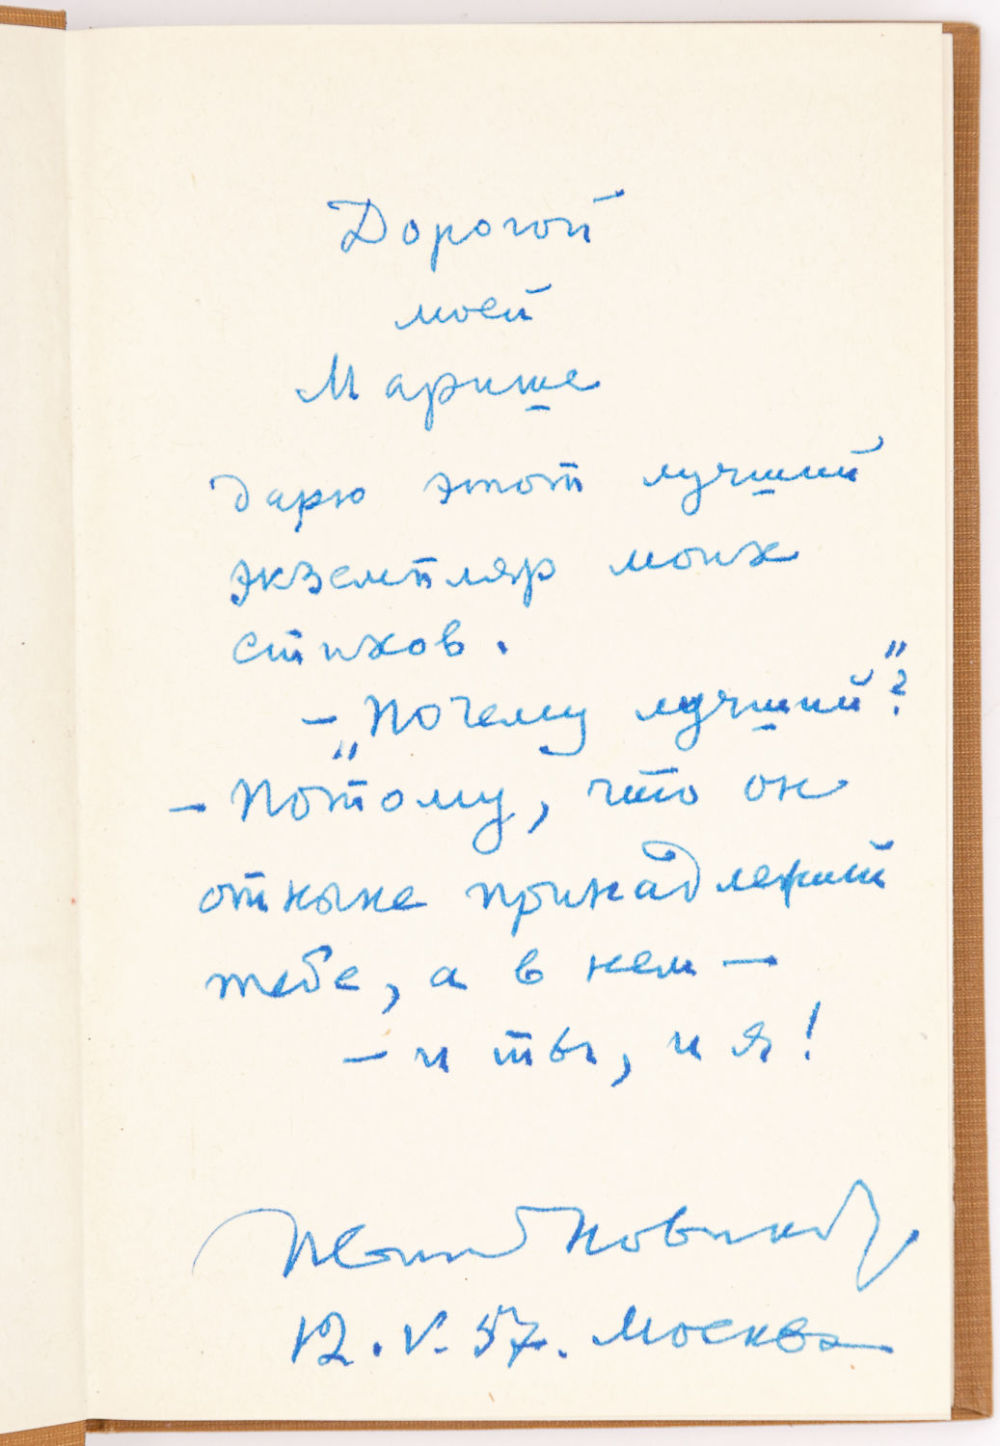 Дорогой
моей
Марише
дарю этот лучший
экземпляр моих
стихов.
— „Почему лучший"?
— Потому, что он
отныне принадлежит
тебе, а в нем —
— и ты, и я!
Новиков
12.V.57. Москва